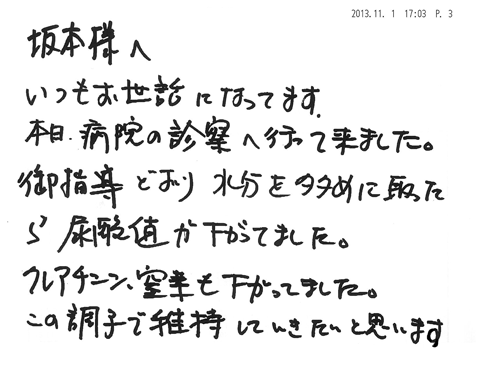 2013.11. 1 17:03 P. 3
坂本様へ
いつもお世話になってます.
本日.病院の診察へ行って来ました。
御指導どおり 水分を多めに取った
ら 尿酸値が下がってました。
クレアチニン、窒素も下がってました。
この調子で維持していきたいと思います